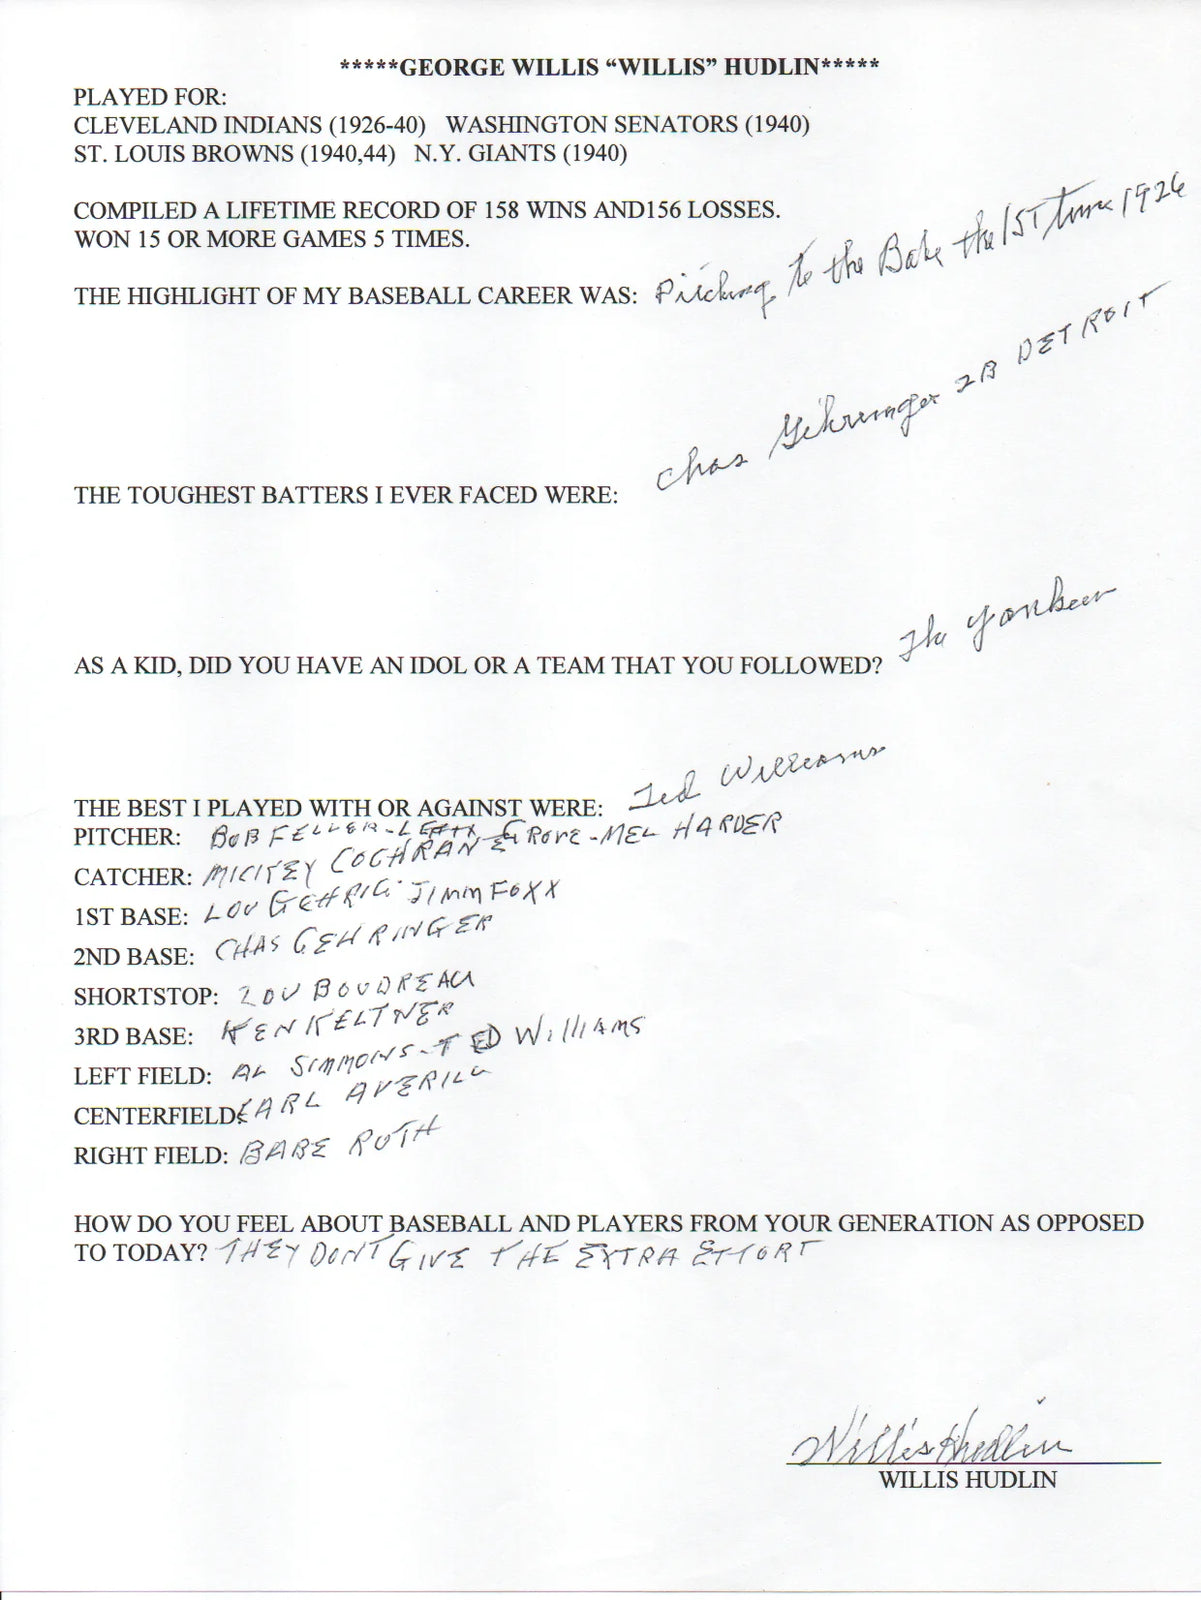 *****GEORGE WILLIS “WILLIS” HUDLIN*****
PLAYED FOR:
CLEVELAND INDIANS (1926-40) WASHINGTON SENATORS (1940)
ST. LOUIS BROWNS (1940,44) N.Y. GIANTS (1940)
COMPILED A LIFETIME RECORD OF 158 WINS AND156 LOSSES.
WON 15 OR MORE GAMES 5 TIMES.
THE HIGHLIGHT OF MY BASEBALL CAREER WAS: Pitching to the Babe the 1ST time 1926
THE TOUGHEST BATTERS I EVER FACED WERE: Chas Gehringer 2B DETROIT
AS A KID, DID YOU HAVE AN IDOL OR A TEAM THAT YOU FOLLOWED? The Yankees
THE BEST I PLAYED WITH OR AGAINST WERE: Ted Williams
PITCHER: BOB FELLER - LEFTY GROVE - MEL HARDER
CATCHER: MICKEY COCHRANE
1ST BASE: LOU GEHRIG - JIMM FOXX
2ND BASE: CHAS GEHRINGER
SHORTSTOP: LOU BOUDREAU
3RD BASE: KEN KELTNER
LEFT FIELD: AL SIMMONS - TED WilliAMS
CENTERFIELD: EARL AVERILL
RIGHT FIELD: BABE RUTH
HOW DO YOU FEEL ABOUT BASEBALL AND PLAYERS FROM YOUR GENERATION AS OPPOSED
TO TODAY? THEY DONT GIVE THE EXTRA EFFORT
Willis Hudlin
WILLIS HUDLIN